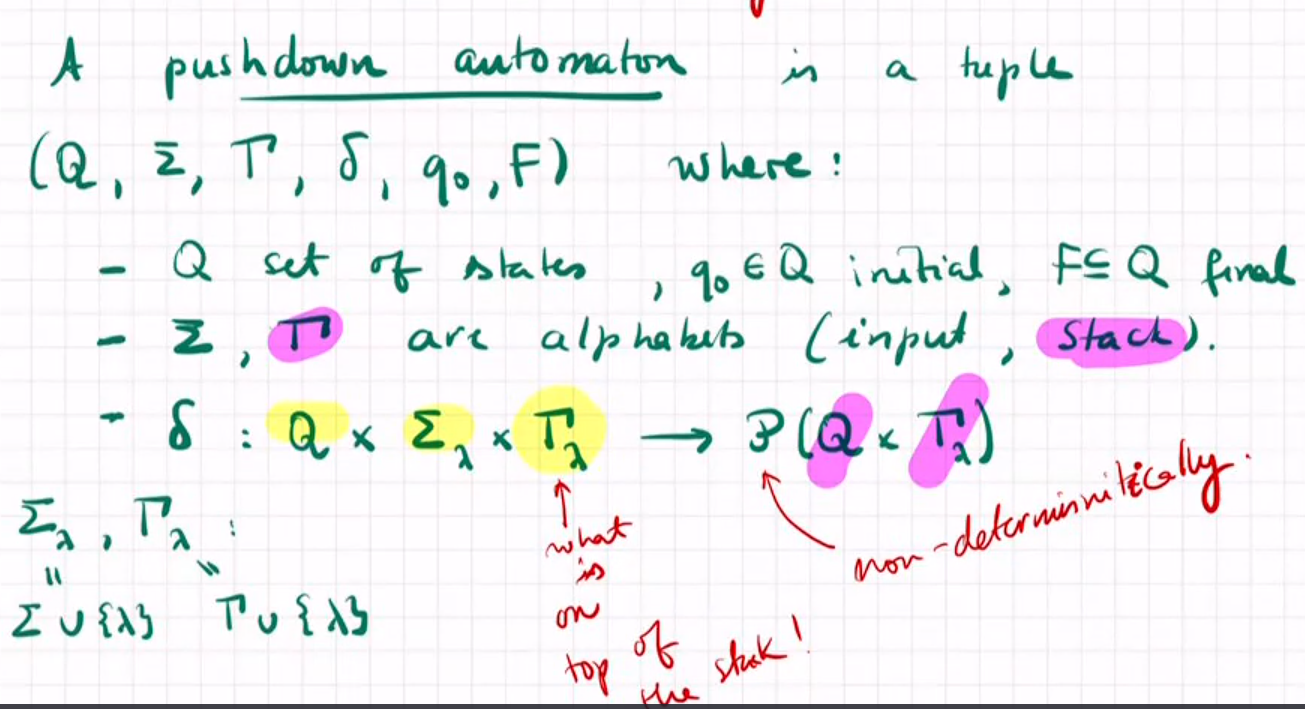 A pushdown automaton is a tuple
(Q, Σ, Γ, δ, q₀, F) where:
- Q set of states, q₀ ∈ Q initial, F ⊆ Q final
- Σ, Γ are alphabets (input, stack).
- δ : Q × Σ_λ × Γ_λ → P(Q × Γ_λ)
Σ_λ, Γ_λ :
" "
Σ ∪ {λ} Γ ∪ {λ}
what
is
on
top of
the stak!
non-deterministically.